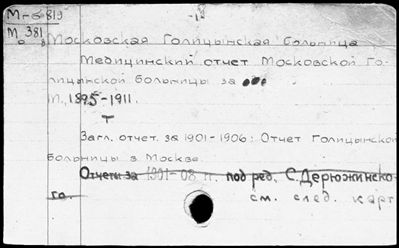 М-6819
М 381
Московская Голицынская больница
Медицинский отчет Московской Го-
лицынской больницы за
М., 1895-1911.
Т
Загл. отчет. за 1901-1906: Отчет Голицынской
больницы в Москве.
Отчеты за 1901-08 гг. под ред. С. Дерюжинско-
го.
см. след. карт